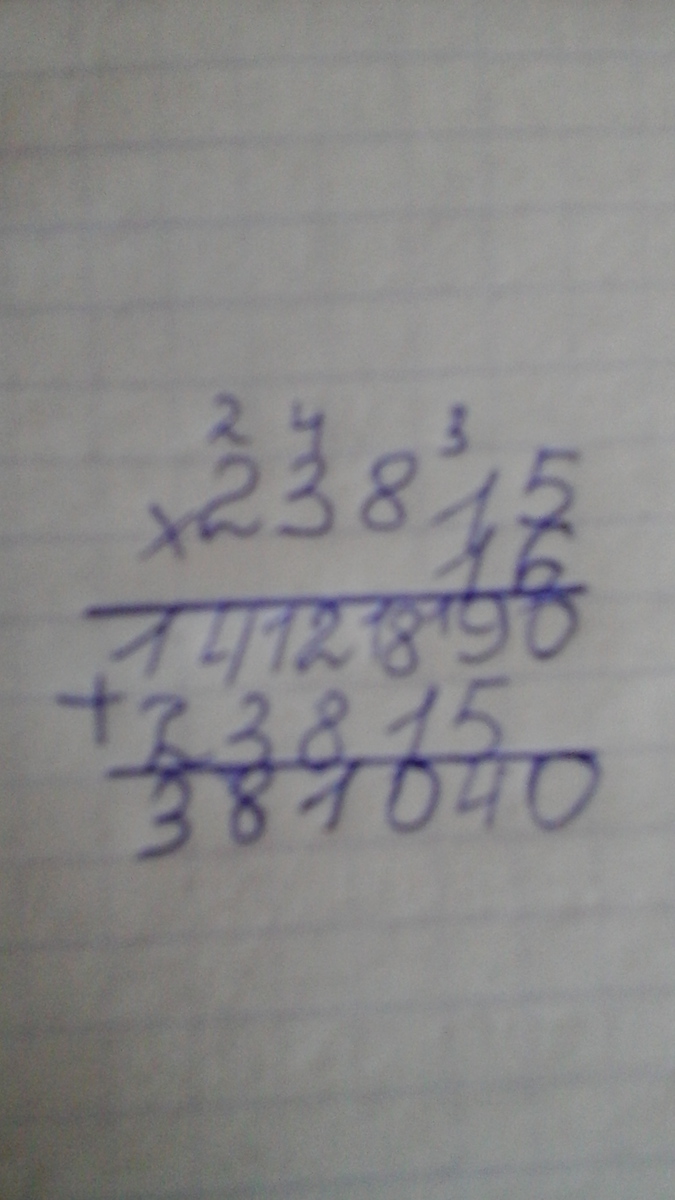 2 4 3
×23815
16
142890
+23815
381040